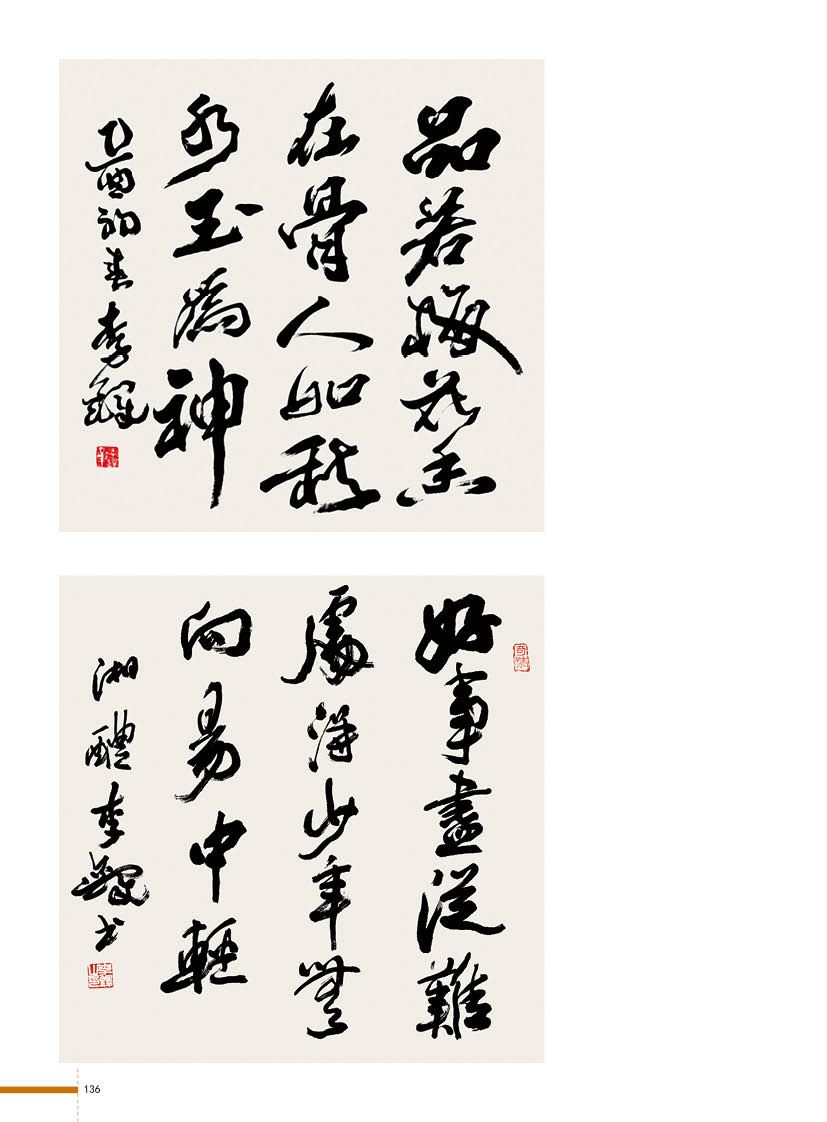 品若梅花香
在骨人如秋
水玉為神
乙酉初春李鐸
好事盡從難
處得少年無
向易中輕
湘醴李鐸书
136